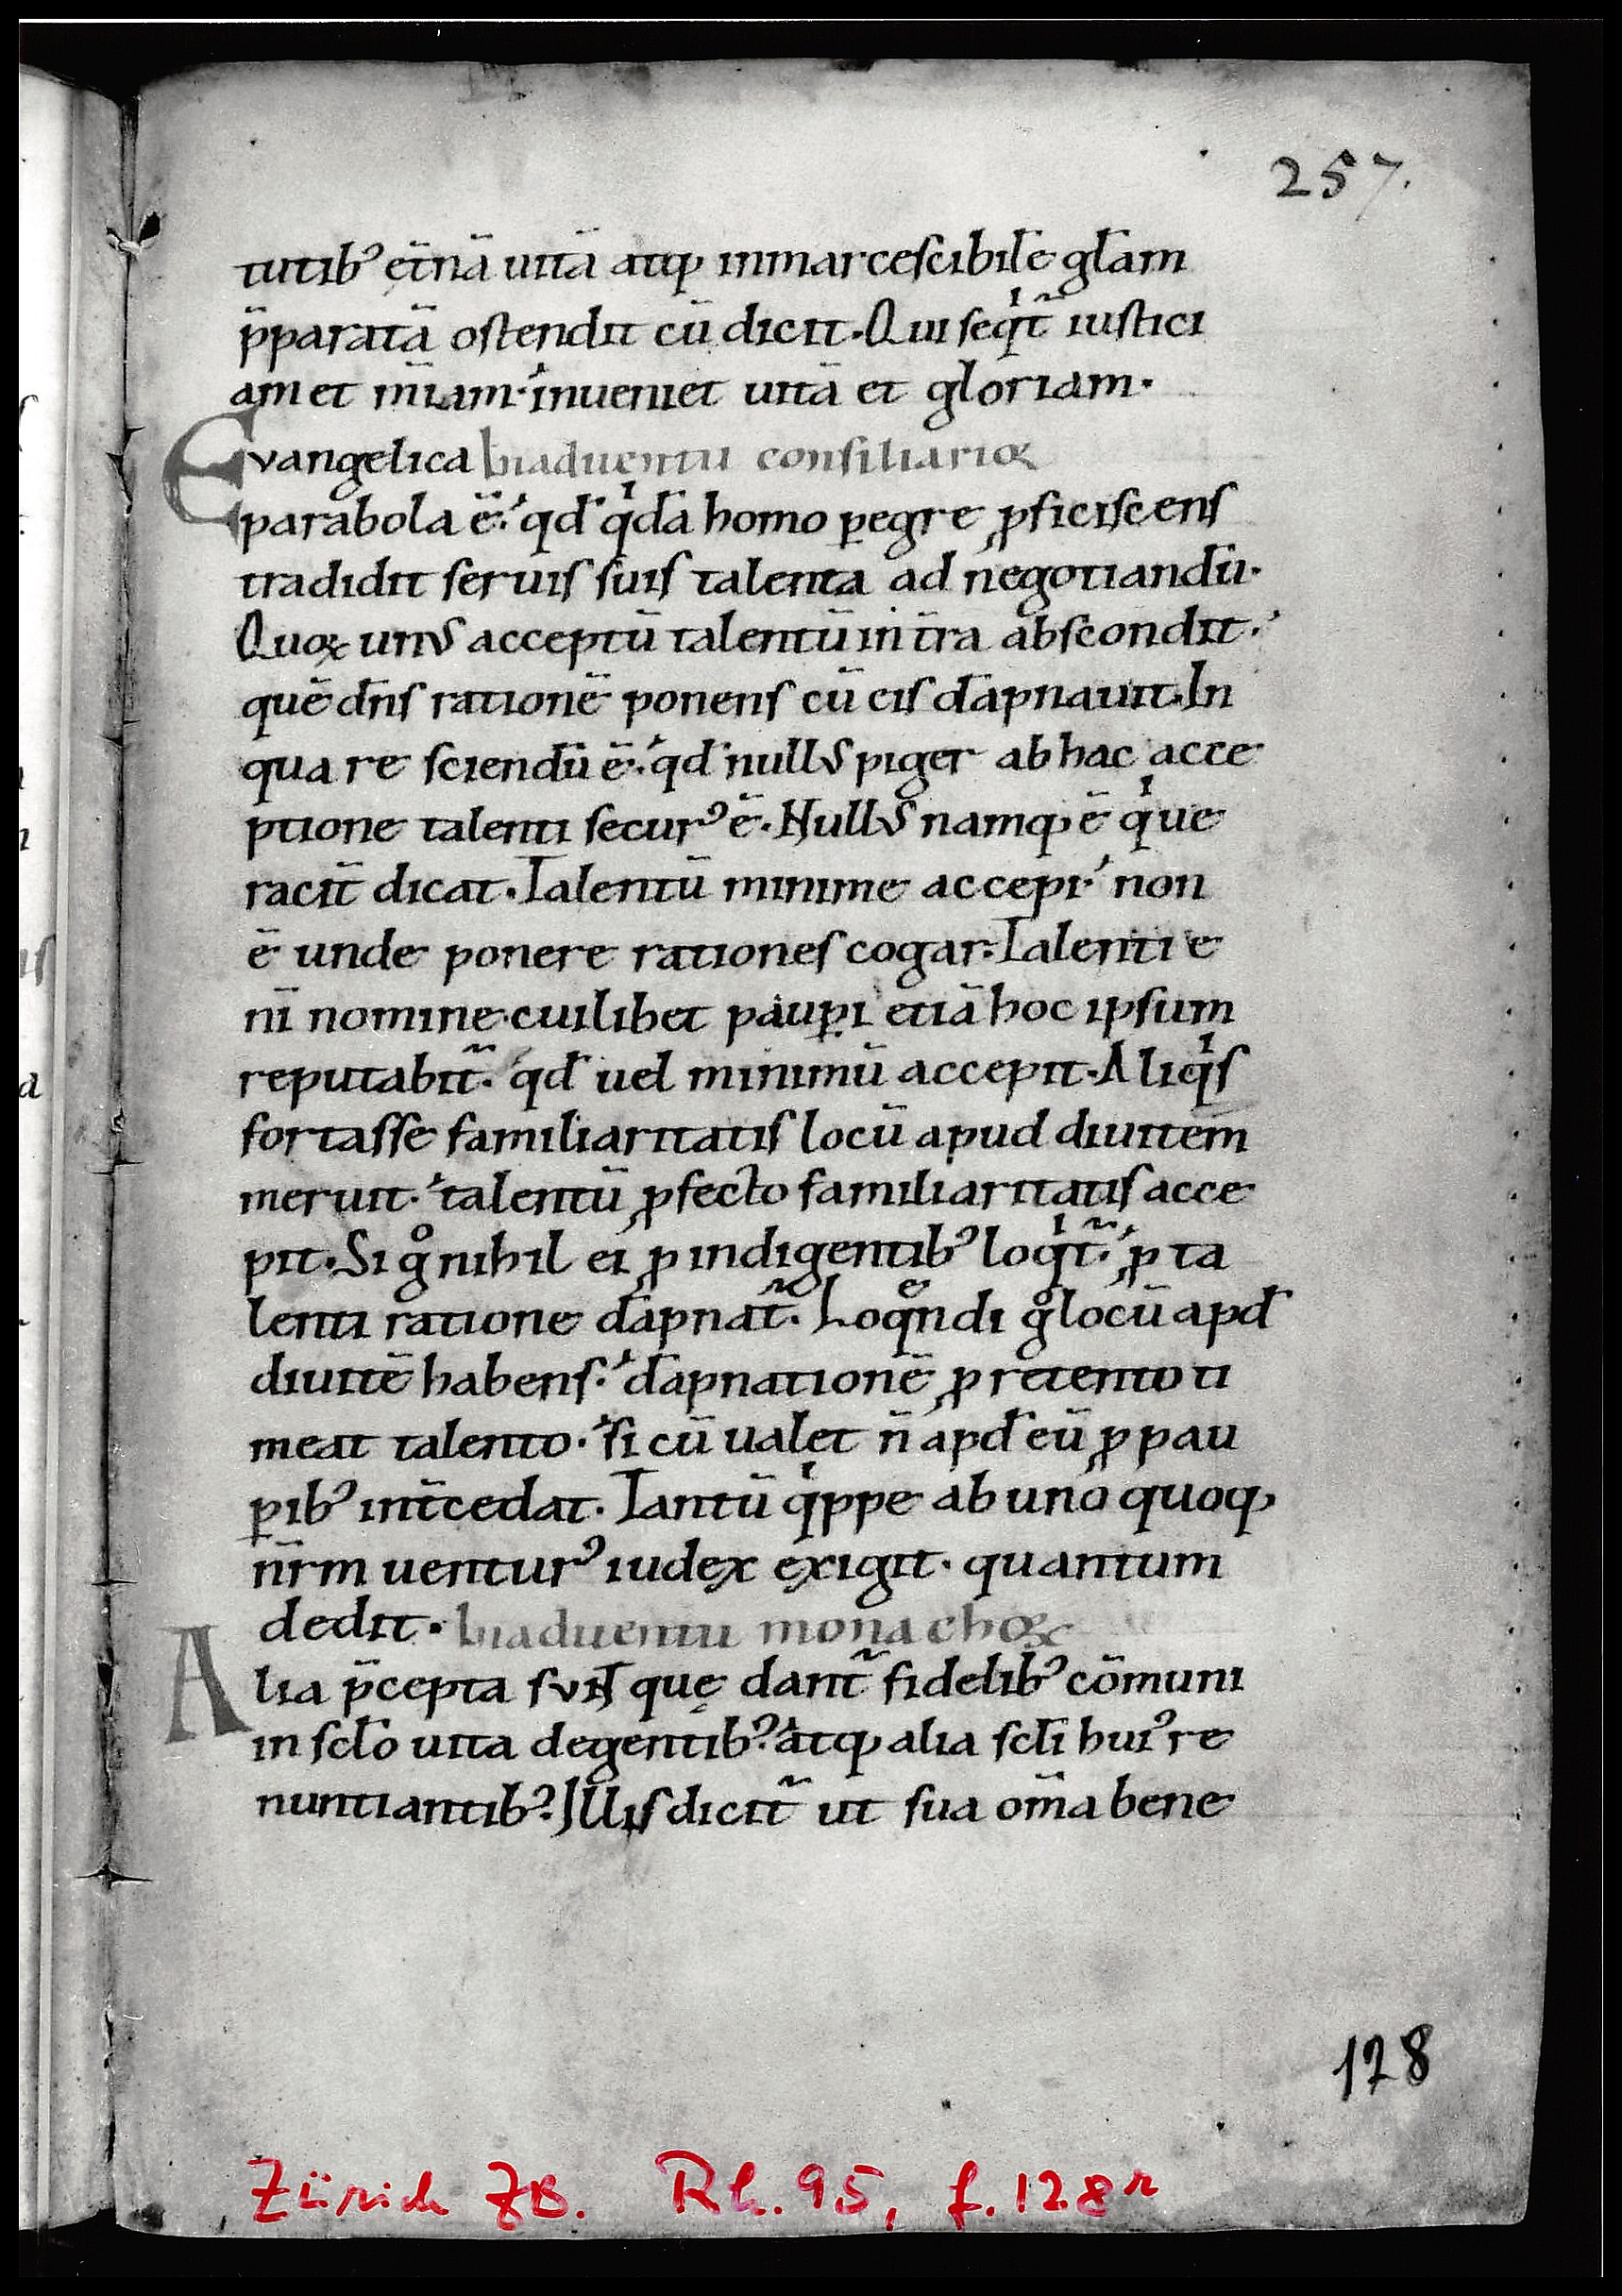 257.
tutibꝰ et̄nā uitā atq; inmarcescibil̄e gl̄am
p̄paratā ostendit cū dicit. Qui seqⁱt᷑ iustici
am et mīam. inueniet uitā et gloriam.
Evangelica In aduentu consiliarioꝝ
parabola ē. qđ qⁱdā homo ꝑegre ꝓficiscens
tradidit seruis suis talenta ad negotiandū.
Quoꝝ unus acceptū talentū in t̄ra abscondit.
quē dn̄s rationē ponens cū eis dāpnauit. In
qua re sciendū ē. qđ nullus piger ab hac acce
ptione talenti securꝰ ē. Nullus namq; ē qⁱ ue
racit̄ dicat. Talentū minime accepi. non
ē unde ponere rationes cogar. Talenti e
nī nomine. cuilibet pauꝑi etiā hoc ipsum
reputabit᷑. qđ uel minimū accepit. Aliqⁱs
fortasse familiaritatis locū apud diuitem
meruit. talentū ꝓfecto familiaritatis acce
pit. Si gͦ nihil ei ꝓ indigentibꝰ loqⁱt᷑. ꝓ ta
lenti ratione dāpnat᷑. Loqͤndi gͦ locū apđ
diuitē habens. dāpnationē ꝓ retento ti
meat talento. si cū ualet n̄ apđ eū ꝓ pau
ꝑibꝰ int̄cedat. Tantū qⁱppe ab uno quoq;
nr̄m uenturꝰ iudex exigit. quantum
dedit. In aduentu monachoꝝ
Alia p̄cepta sunt quę dant᷑ fidelibꝰ cōmuni
in scl̄o uita degentibꝰ. atq; alia scl̄i huiꝰ re
nuntiantibꝰ. Illis dicit᷑ ut sua om̄a bene
128
Zürich ZB. Rh. 95, f. 128r